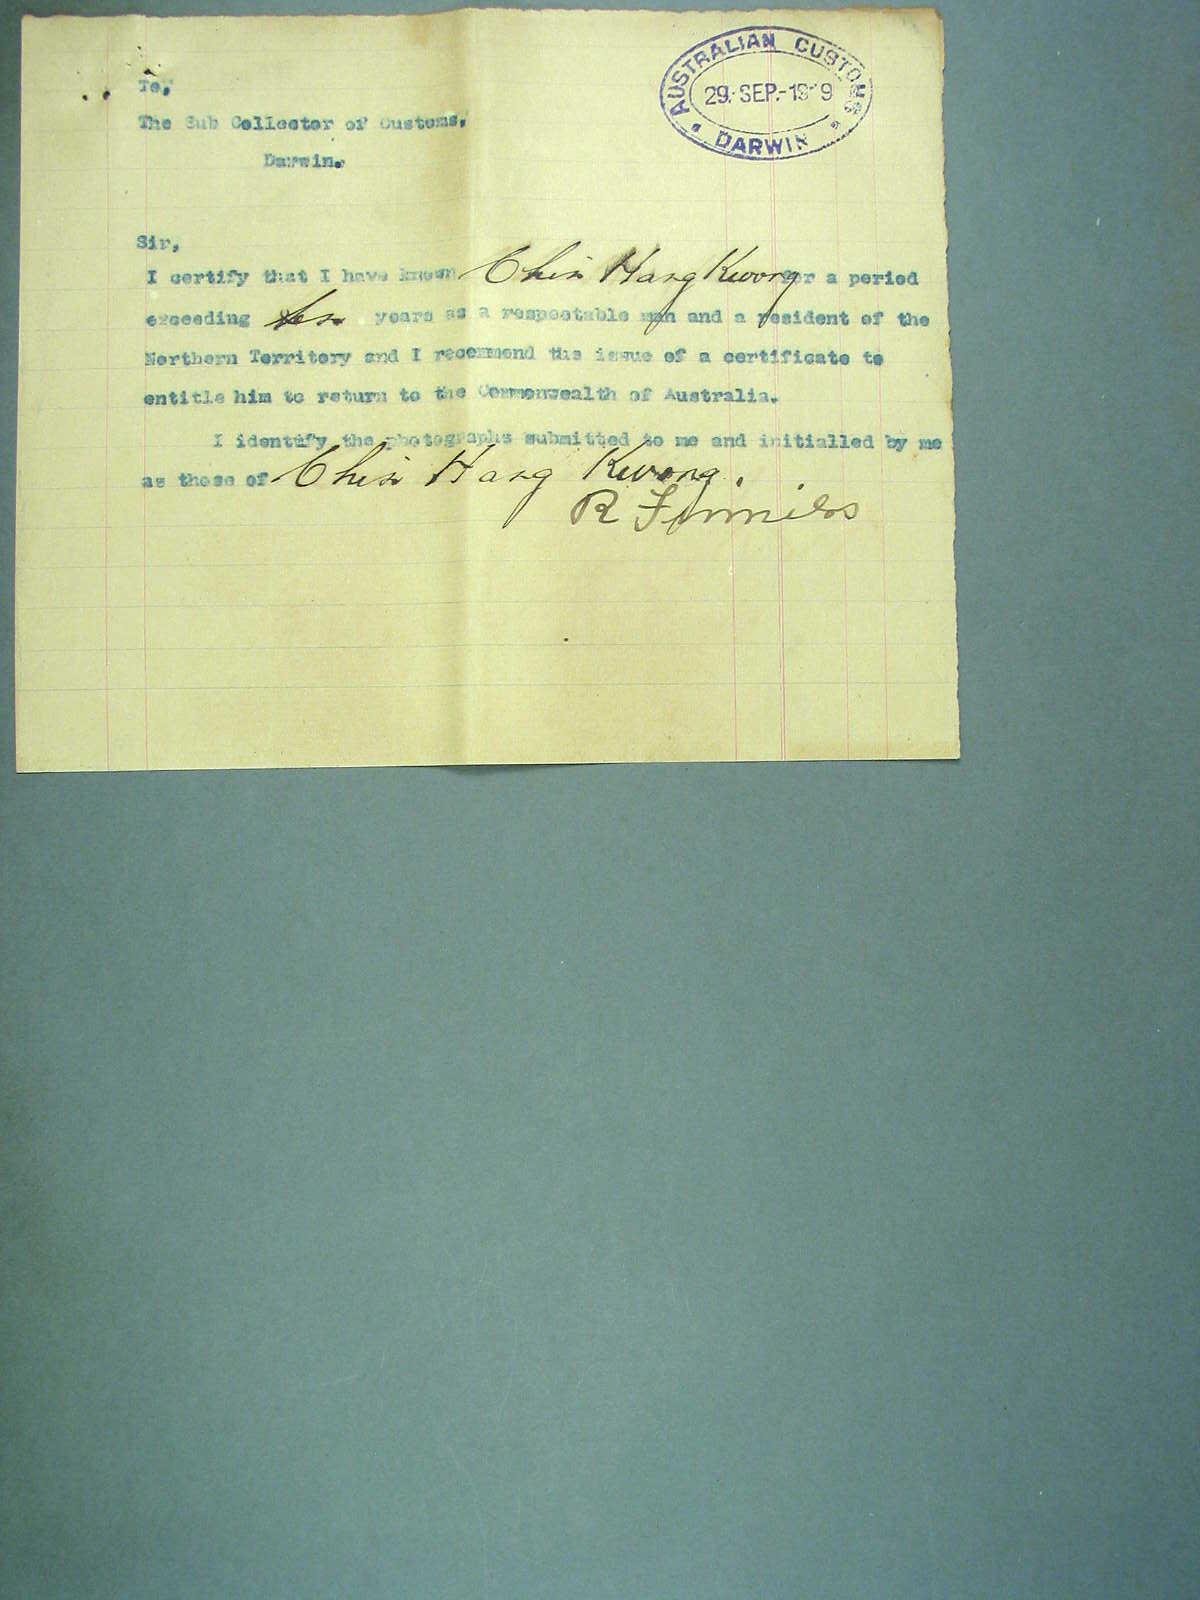 AUSTRALIAN CUSTOMS
29. SEP. 1919
DARWIN
To,
The Sub Collector of Customs,
Darwin.
Sir,
I certify that I have known Chin Hang Kwong for a period
exceeding ten years as a respectable man and a resident of the
Northern Territory and I recommend the issue of a certificate to
entitle him to return to the Commonwealth of Australia.
I identify the photographs submitted to me and initialled by me
as those of Chin Hang Kwong.
R